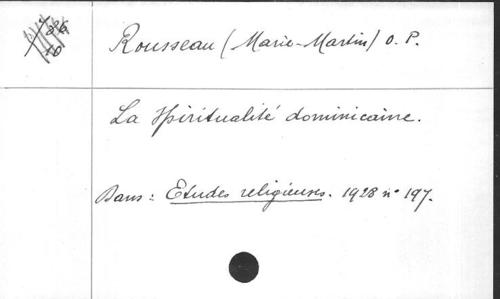 Rousseau (Marie-Martin) O. P.
La Spiritualité dominicaine.
Dans : Etudes religieuses. 1928 n° 197.